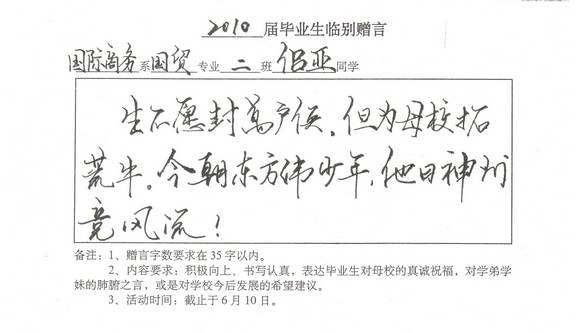 2010 届毕业生临别赠言
国际商务系国贸专业二班侣亚同学
生不愿封万户侯，但为母校拓
荒牛。今朝东方伟少年，他日神州
竞风流！
备注：1、赠言字数要求在 35 字以内。
2、内容要求：积极向上、书写认真，表达毕业生对母校的真诚祝福，对学弟学
妹的肺腑之言，或是对学校今后发展的希望建议。
3、活动时间：截止于 6 月 10 日。